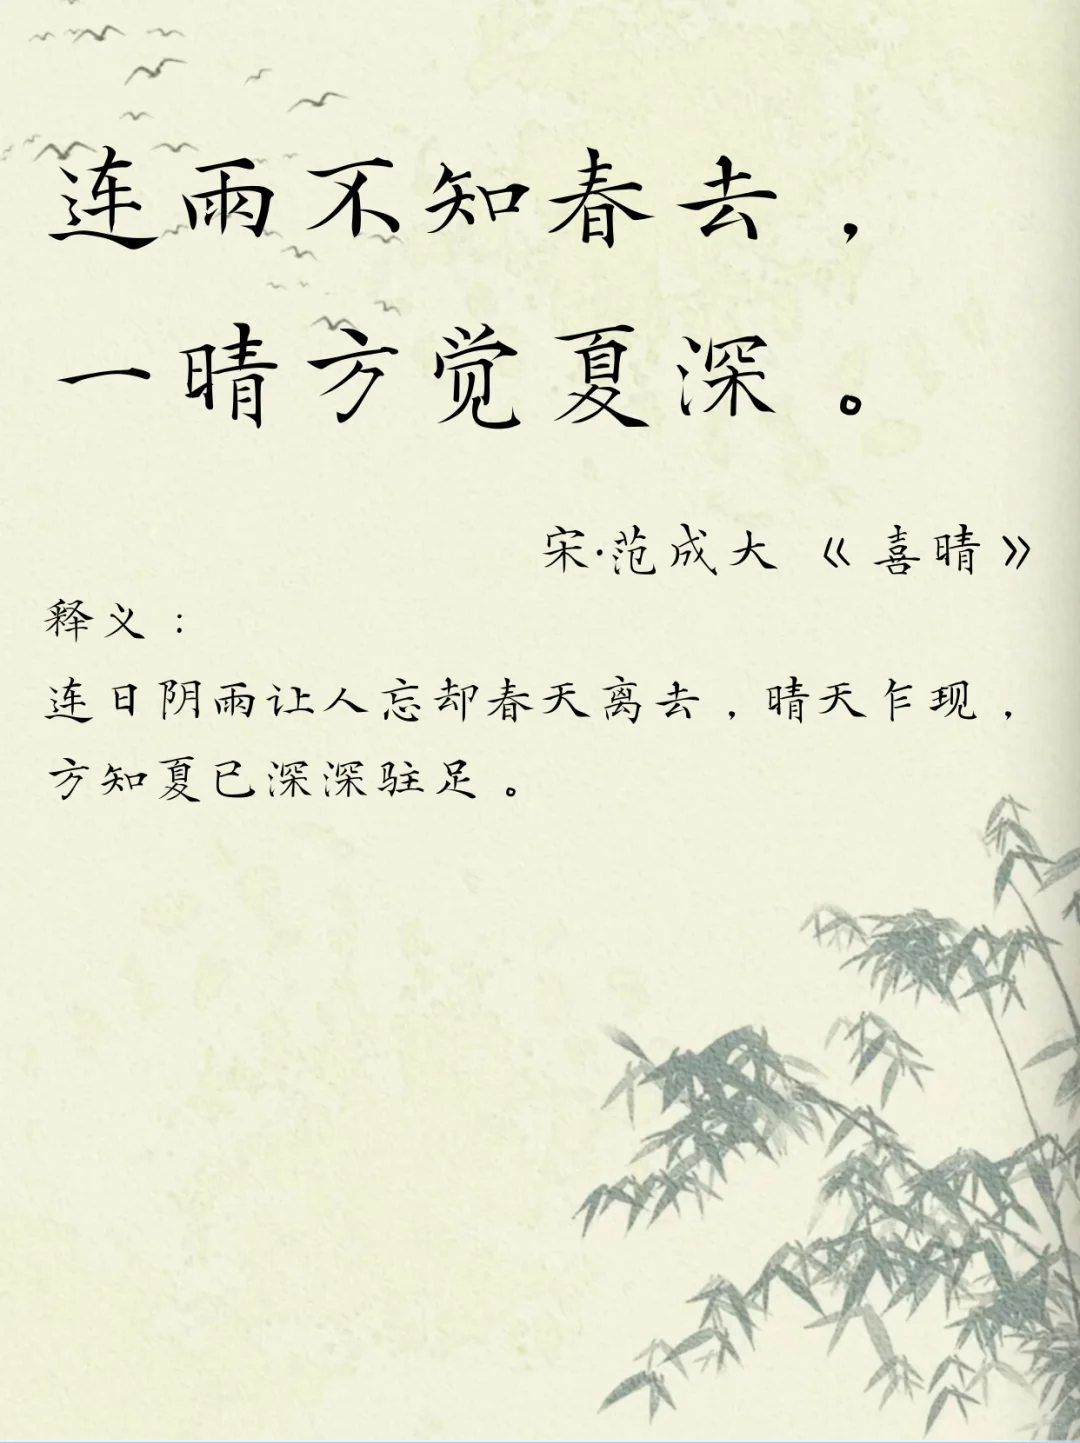 连雨不知春去，
一晴方觉夏深。
宋·范成大《喜晴》
释义：
连日阴雨让人忘却春天离去，晴天乍现，
方知夏已深深驻足。